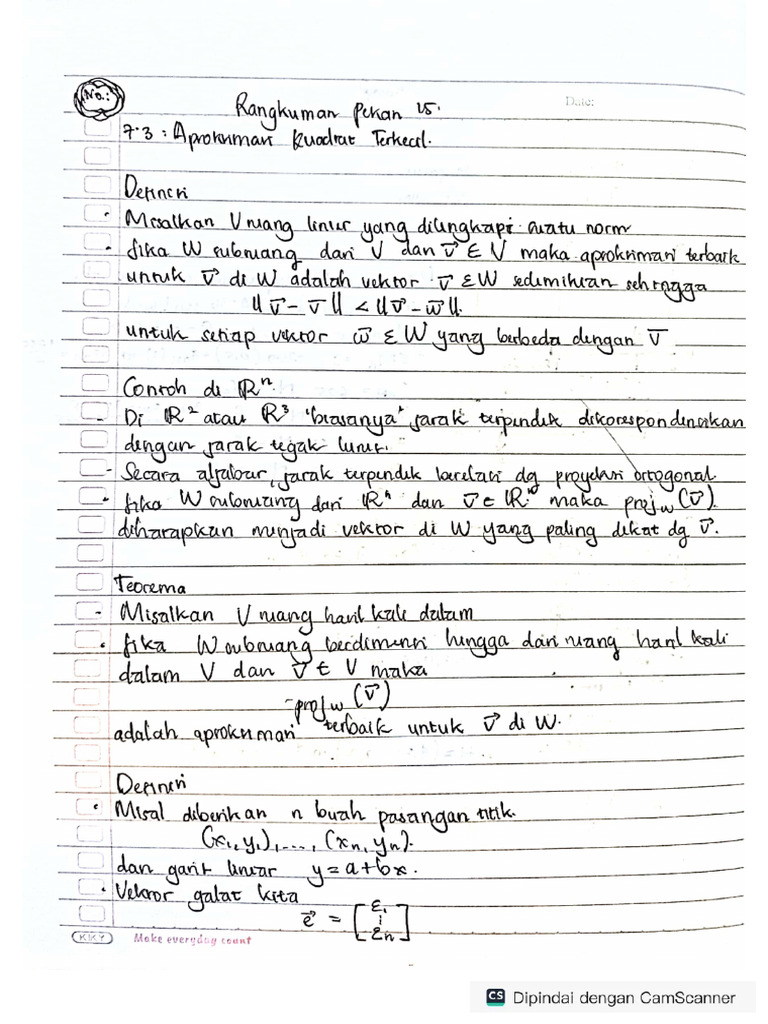 No.:
Rangkuman Pekan 15.
Date:
7.3 : Aproksimasi Kuadrat Terkecil.
Definisi
• Misalkan V ruang linier yang dilengkapi suatu norm
• Jika W subruang dari V dan v⃗ ∈ V maka aproksimasi terbaik
untuk v⃗ di W adalah vektor v̅ ∈ W sedemikian sehingga
||v⃗ - v̅|| < ||v⃗ - w⃗||.
untuk setiap vektor w⃗ ∈ W yang berbeda dengan v̅
Contoh di ℝⁿ.
- Di ℝ² atau ℝ³ "biasanya" jarak terpendek dikorespondensikan
dengan jarak tegak lurus.
- Secara aljabar, jarak terpendek berelasi dg proyeksi ortogonal
• Jika W subruang dari ℝⁿ dan v⃗ ∈ ℝⁿ maka proj_w (v⃗)
diharapkan menjadi vektor di W yang paling dekat dg v⃗.
Teorema
- Misalkan V ruang hasil kali dalam
• Jika W subruang berdimensi hingga dari ruang hasil kali
dalam V dan v⃗ ∈ V maka
proj_w (v⃗)
adalah aproksimasi terbaik untuk v⃗ di W.
Definisi
• Misal diberikan n buah pasangan titik.
(x₁, y₁), ..., (xₙ, yₙ).
dan garis linear y = a + bx.
• Vektor galat kita
e⃗ = [ε₁ ⋮ εₙ]
KIKY Make everyday count
CS Dipindai dengan CamScanner